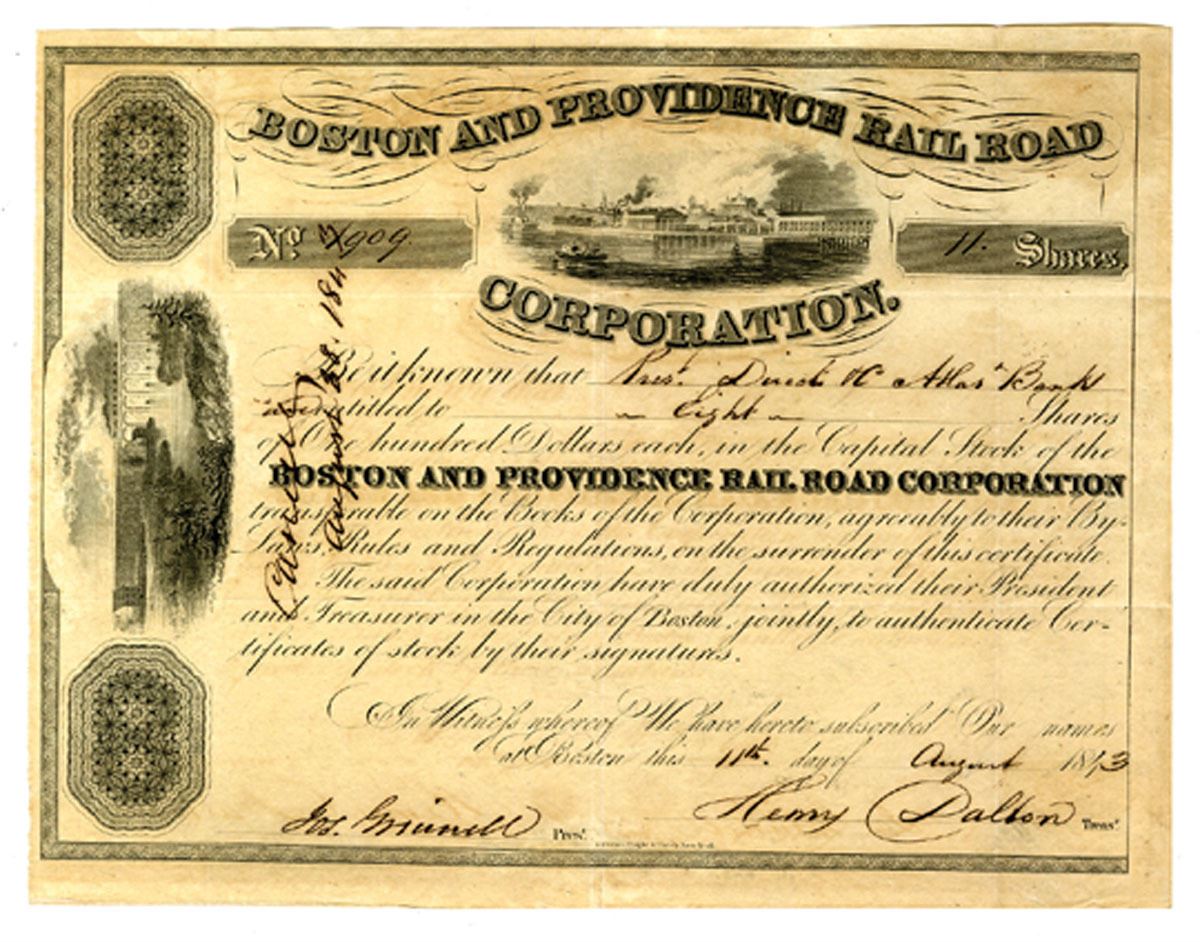 BOSTON AND PROVIDENCE RAIL ROAD
No. 909.
11. Shares.
CORPORATION.
Be it known that Prest. Direct &c Atlas Bank
entitled to Eight Shares
of One hundred Dollars each, in the Capital Stock of the
BOSTON AND PROVIDENCE RAIL ROAD CORPORATION
transferable on the Books of the Corporation, agreeably to their By-
Laws, Rules and Regulations, on the surrender of this certificate.
The said Corporation have duly authorized their President
and Treasurer in the City of Boston, jointly, to authenticate Cer-
tificates of stock by their signatures.
In Witness whereof We have hereto subscribed Our names
at Boston this 11th. day of August 1843
Jos. Grinnell Prest.
Henry Dalton Treasr.
Cancelled
August 28. 184